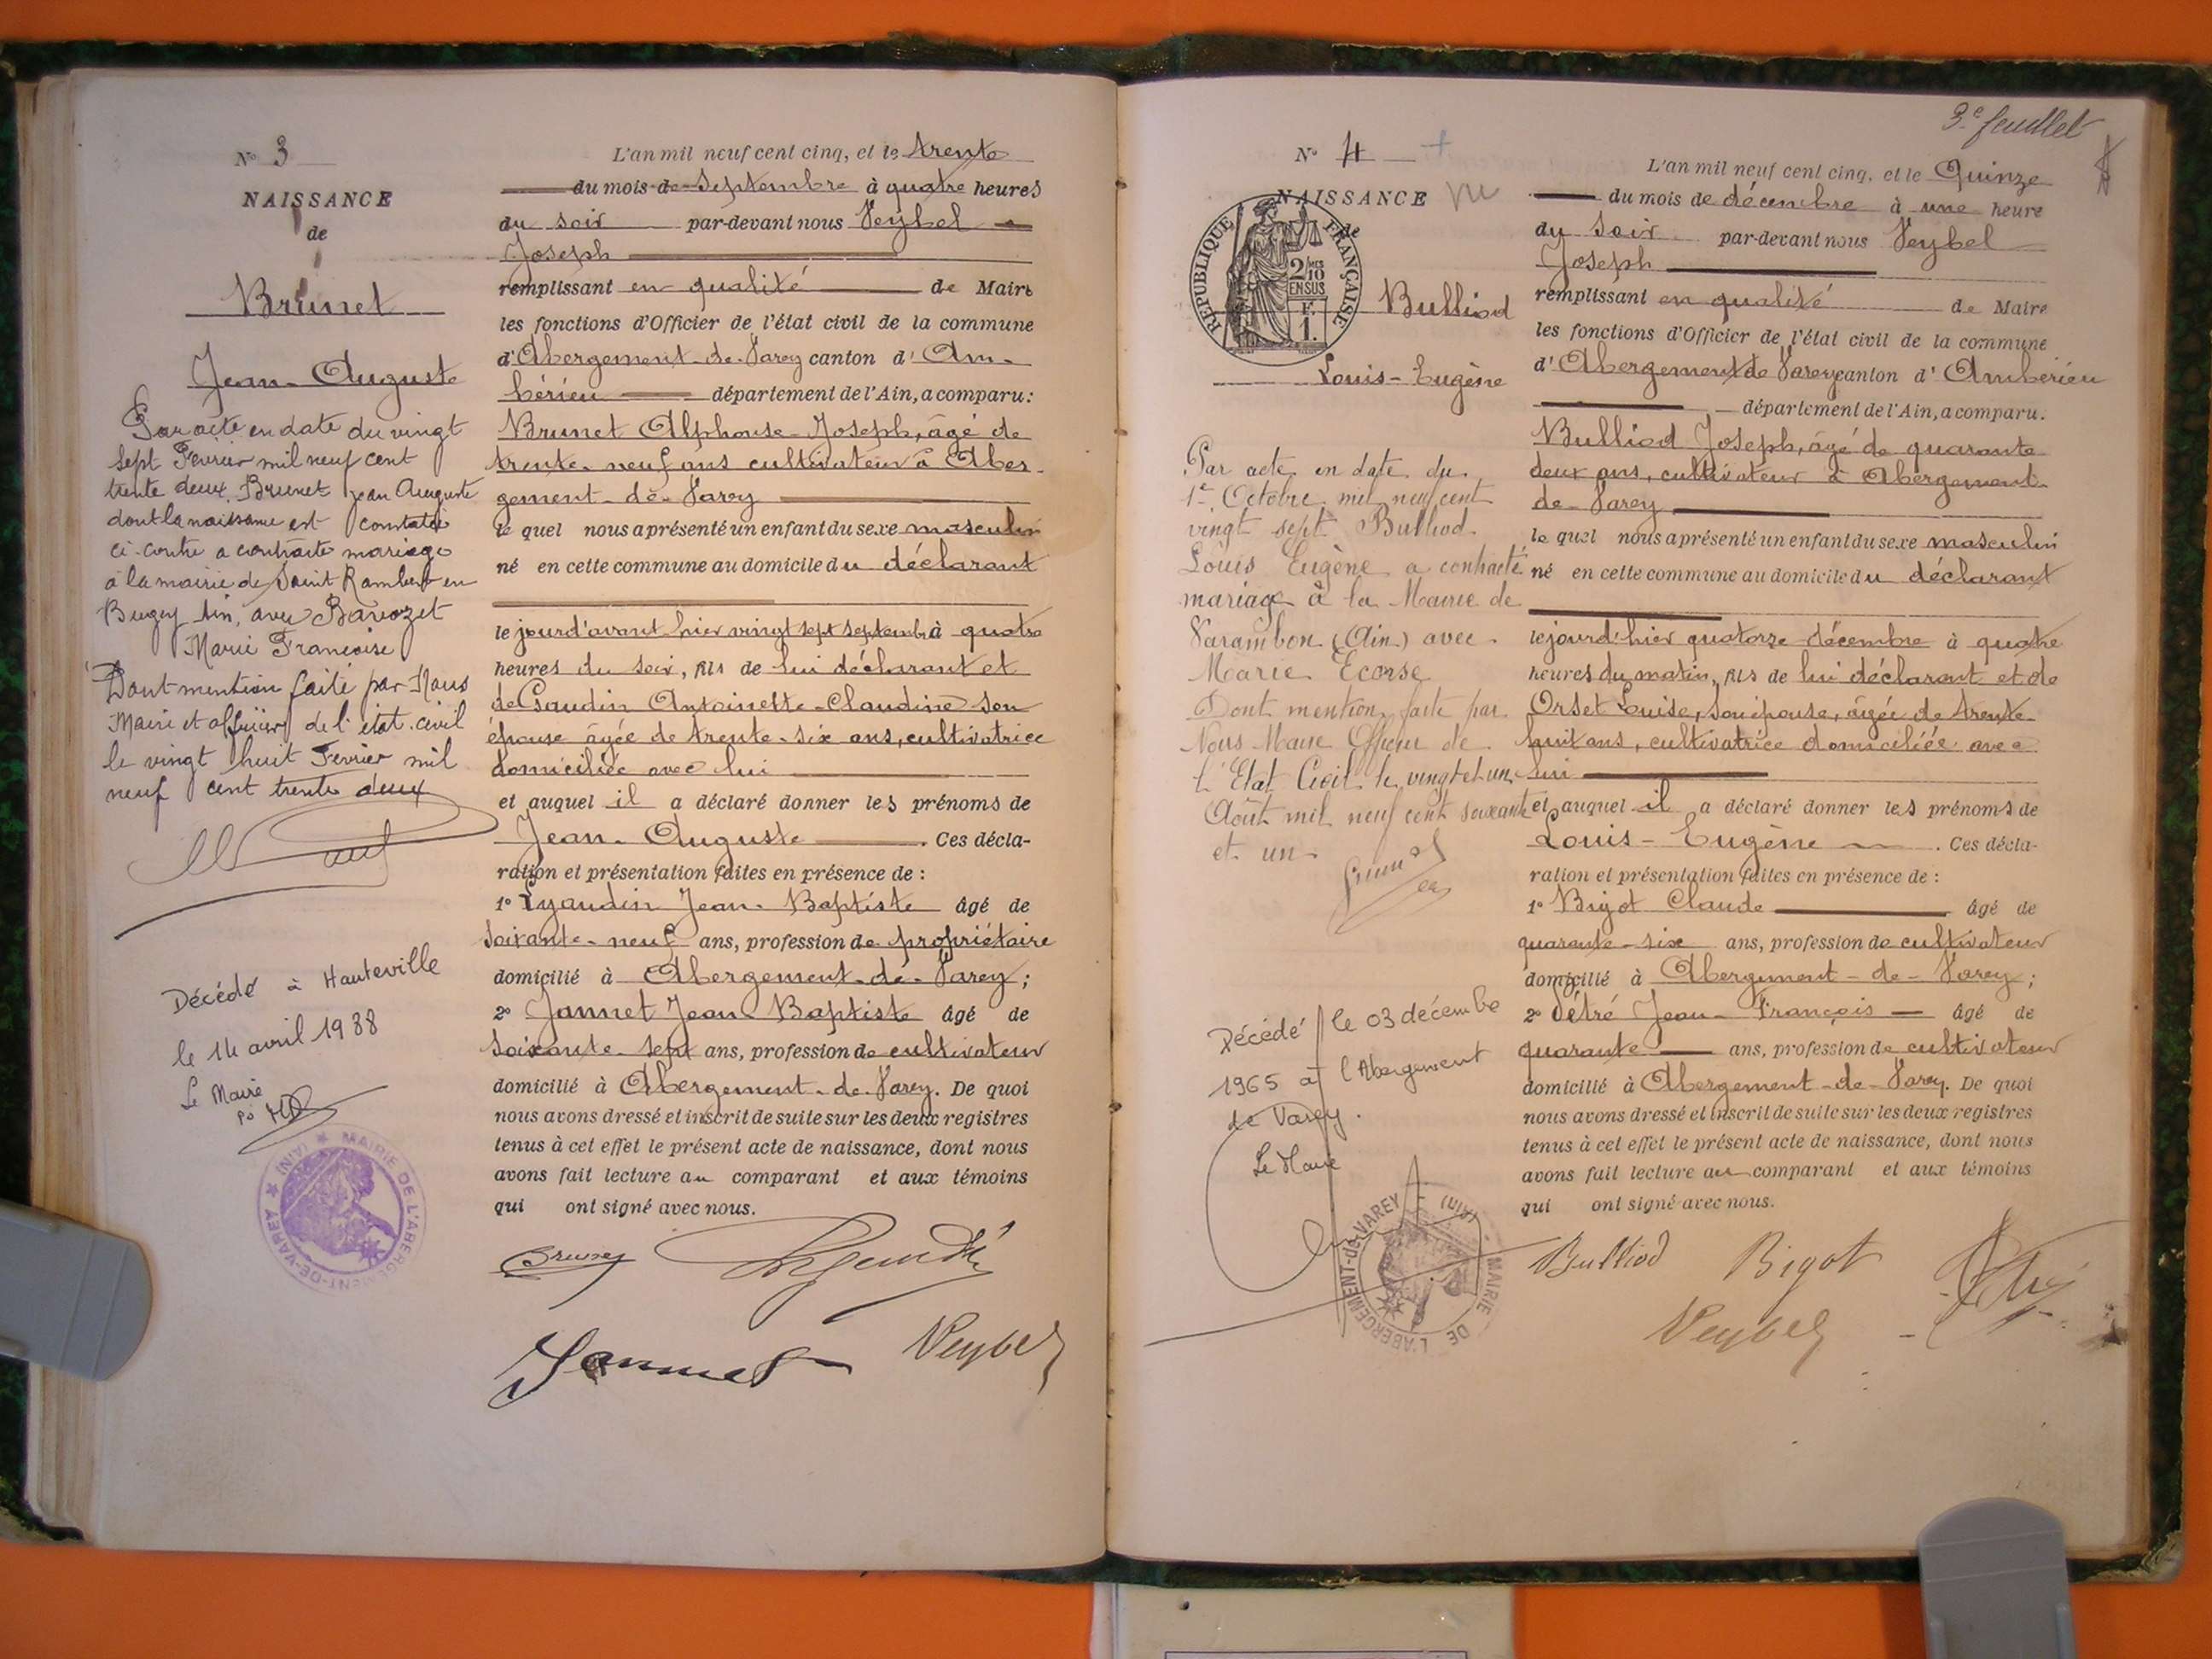 N° 3
NAISSANCE
de
Brunet
Jean-Auguste
Par acte en date du vingt
sept Fevrier mil neuf cent
trente deux, Brunet Jean Auguste
dont la naissance est constatée
ci-contre a contracté mariage
à la mairie de Saint Rambert en
Bugey Ain, avec Bavozet
Marie Francoise
Dont mention faite par Nous
Maire et officier de l'état-civil
le vingt huit Fevrier mil
neuf cent trente deux
Décédé à Hauteville
le 14 avril 1988
Le Maire
po
MAIRIE DE L'ABERGEMENT-DE-VAREY (AIN)
L'an mil neuf cent cinq, et le trente
du mois de Septembre à quatre heures
du soir par-devant nous Veybel
Joseph
remplissant en qualité de Maire
les fonctions d'Officier de l'état civil de la commune
d'Abergement-de-Varey canton d'Am-
bérieu département de l'Ain, a comparu:
Brunet Alphonse-Joseph, âgé de
trente-neuf ans cultivateur à Aber-
gement-de-Varey
le quel nous a présenté un enfant du sexe masculin
né en cette commune au domicile du déclarant
le jour d'avant hier vingt sept septemb. à quatre
heures du soir, fils de lui déclarant et
de Gaudin Antoinette-Claudine son
épouse âgée de trente-six ans, cultivatrice
domiciliée avec lui
et auquel il a déclaré donner les prénoms de
Jean-Auguste . Ces décla-
ration et présentation faites en présence de :
1° Lyaudin Jean-Baptiste âgé de
soixante-neuf ans, profession de propriétaire
domicilié à Abergement-de-Varey ;
2° Jannet Jean-Baptiste âgé de
soixante-sept ans, profession de cultivateur
domicilié à Abergement-de-Varey. De quoi
nous avons dressé et inscrit de suite sur les deux registres
tenus à cet effet le présent acte de naissance, dont nous
avons fait lecture au comparant et aux témoins
qui ont signé avec nous.
Brunet
Jannet Veybel
3e feuillet
N° 4
NAISSANCE vu
de
REPUBLIQUE FRANÇAISE
2/10 MES
EN SUS
F.
1.
Bulliod
Louis-Eugène
Par acte en date du
1e Octobre mil neuf cent
vingt sept Bulliod
Louis Eugène a contracté
mariage à la Mairie de
Varambon (Ain) avec
Marie Ecorse
Dont mention faite par
Nous Maire Officier de
l'Etat Civil le vingt et un
Août mil neuf cent soixante
et un
Décédé le 03 décembre
1965 à l'Abergement
de Varey.
Le Maire
MAIRIE DE L'ABERGEMENT-de-VAREY (AIN)
L'an mil neuf cent cinq, et le Quinze
du mois de décembre à une heure
du soir par-devant nous Veybel
Joseph
remplissant en qualité de Maire
les fonctions d'Officier de l'état civil de la commune
d'Abergement de Varey canton d'Ambérieu
département de l'Ain, a comparu.
Bulliod Joseph, âgé de quarante
deux ans, cultivateur à Abergement
de-Varey
le quel nous a présenté un enfant du sexe masculin
né en cette commune au domicile du déclarant
le jour d'hier quatorze décembre à quatre
heures du matin, fils de lui déclarant et de
Orset Louise, son épouse, âgée de trente
huit ans, cultivatrice domiciliée avec
lui
et auquel il a déclaré donner les prénoms de
Louis-Eugène . Ces décla-
ration et présentation faites en présence de :
1° Bigot Claude âgé de
quarante-six ans, profession de cultivateur
domicilié à Abergement-de-Varey ;
2° Vétré Jean-François âgé de
quarante ans, profession de cultivateur
domicilié à Abergement-de-Varey. De quoi
nous avons dressé et inscrit de suite sur les deux registres
tenus à cet effet le présent acte de naissance, dont nous
avons fait lecture au comparant et aux témoins
qui ont signé avec nous.
Bulliod Bigot
Veybel